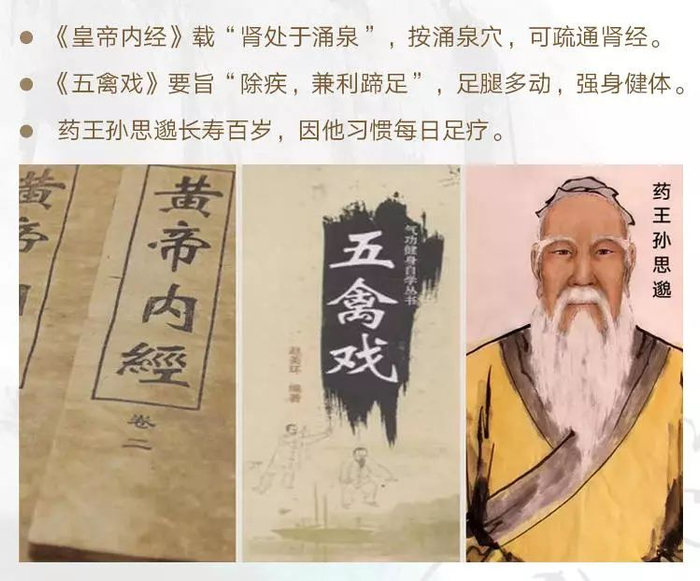 《皇帝内经》载“肾处于涌泉”，按涌泉穴，可疏通肾经。
《五禽戏》要旨“除疾，兼利蹄足”，足腿多动，强身健体。
药王孙思邈长寿百岁，因他习惯每日足疗。
黄帝内
黄帝内經
卷二
五禽戏
气功健身自学丛书
赵美环 编著
药王孙思邈